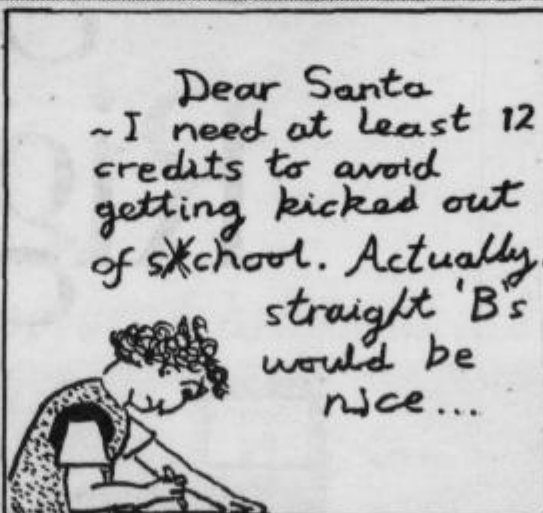 Dear Santa
~I need at least 12
credits to avoid
getting kicked out
of school. Actually,
straight 'B's
would be
nice...